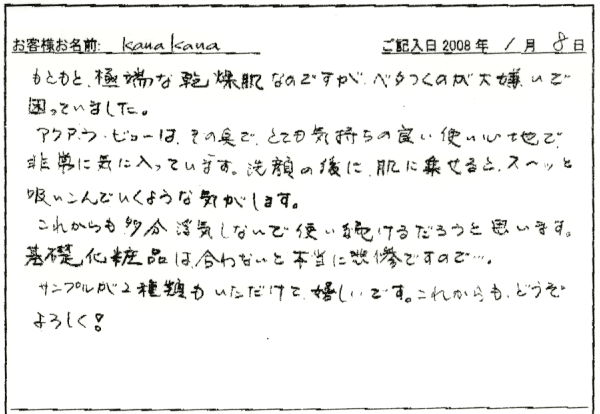 お客様お名前: kana kana
ご記入日2008年 1月 8日
もともと、極端な乾燥肌なのですが、ベタつくのが大嫌いで
困っていました。
アクア・ラ・ビューは、その点で、とても気持ちの良い使い心地で、
非常に気に入っています。洗顔の後に、肌に乗せると、スーッと
吸いこんでいくような気がします。
これからも多分浮気しないで使い続けるだろうと思います。
基礎化粧品は、合わないと本当に悲惨ですので…。
サンプルが2種類もいただけて、嬉しいです。これからも、どうぞ
よろしく!